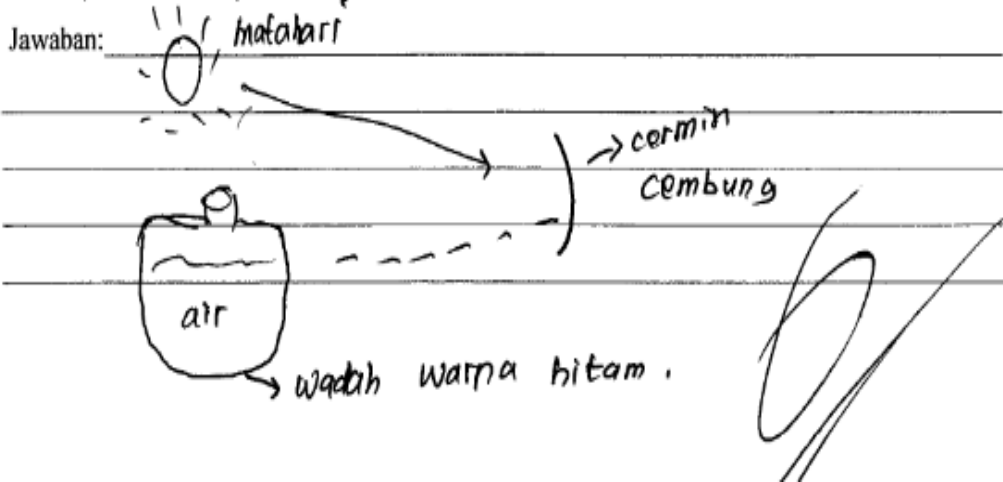 Jawaban: matahari
→ cermin
cembung
air
→ wadah warna hitam.